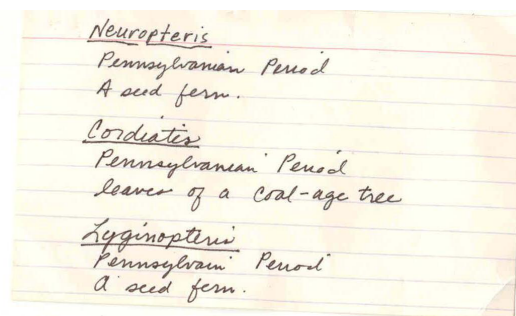 Neuropteris
Pennsylvanian Period
A seed fern.
Cordiates
Pennsylvanian Period
leaves of a coal-age tree
Lyginopteris
Pennsylvain Period
a seed fern.